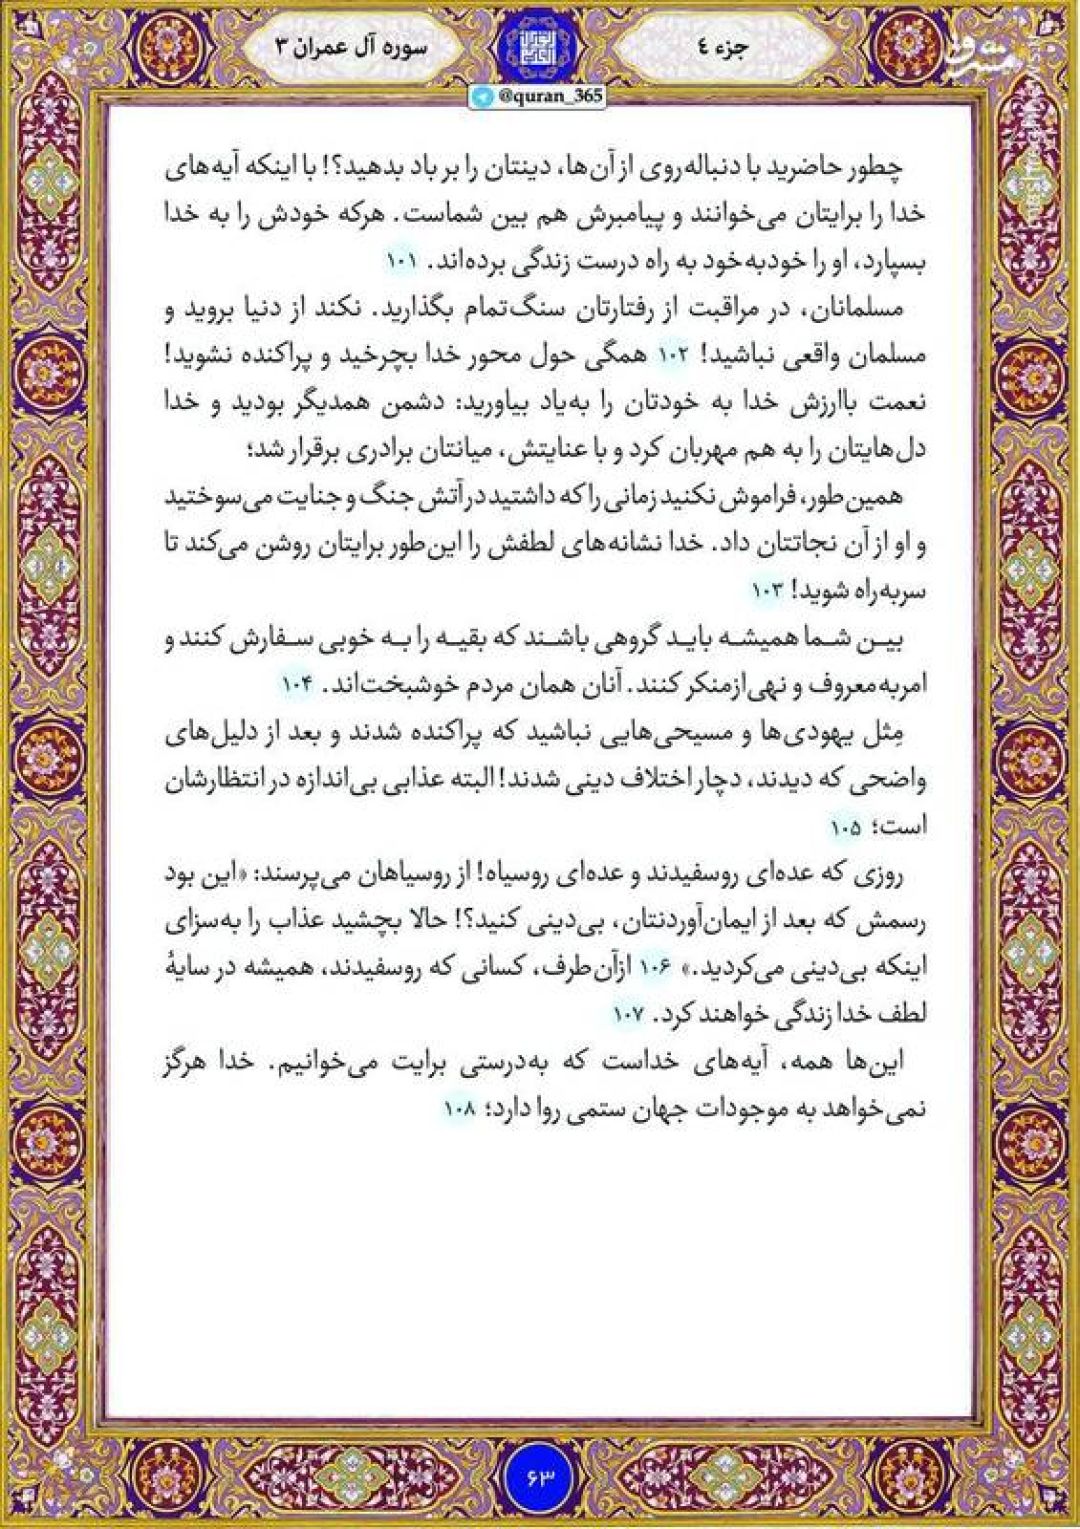 جزء ٤
سوره آل عمران ۳
@quran_365
مشرق
چطور حاضرید با دنباله‌روی از آن‌ها، دینتان را بر باد بدهید؟! با اینکه آیه‌های
خدا را برایتان می‌خوانند و پیامبرش هم بین شماست. هرکه خودش را به خدا
بسپارد، او را خودبه‌خود به راه درست زندگی برده‌اند. ۱۰۱
مسلمانان، در مراقبت از رفتارتان سنگ‌تمام بگذارید. نکند از دنیا بروید و
مسلمان واقعی نباشید! ۱۰۲ همگی حول محور خدا بچرخید و پراکنده نشوید!
نعمت باارزش خدا به خودتان را به‌یاد بیاورید: دشمن همدیگر بودید و خدا
دل‌هایتان را به هم مهربان کرد و با عنایتش، میانتان برادری برقرار شد؛
همین‌طور، فراموش نکنید زمانی را که داشتید در آتش جنگ و جنایت می‌سوختید
و او از آن نجاتتان داد. خدا نشانه‌های لطفش را این‌طور برایتان روشن می‌کند تا
سربه‌راه شوید! ۱۰۳
بیـن شـما همیشـه بایـد گروهی باشـند که بقیـه را بـه خوبی سـفارش کنند و
امربه‌معروف و نهی‌ازمنکر کنند. آنان همان مردم خوشبخت‌اند. ۱۰۴
مِثل یهودی‌ها و مسیحی‌هایی نباشید که پراکنده شدند و بعد از دلیل‌های
واضحی که دیدند، دچار اختلاف دینی شدند! البته عذابی بی‌اندازه در انتظارشان
است؛ ۱۰۵
روزی که عده‌ای روسفیدند و عده‌ای روسیاه! از روسیاهان می‌پرسند: «این بود
رسمش که بعد از ایمان‌آوردنتان، بی‌دینی کنید؟! حالا بچشید عذاب را به‌سزای
اینکه بی‌دینی می‌کردید.» ۱۰۶ ازآن‌طرف، کسانی که روسفیدند، همیشه در سایهٔ
لطف خدا زندگی خواهند کرد. ۱۰۷
این‌ها همه، آیه‌های خداست که به‌درستی برایت می‌خوانیم. خدا هرگز
نمی‌خواهد به موجودات جهان ستمی روا دارد؛ ۱۰۸
۶۳